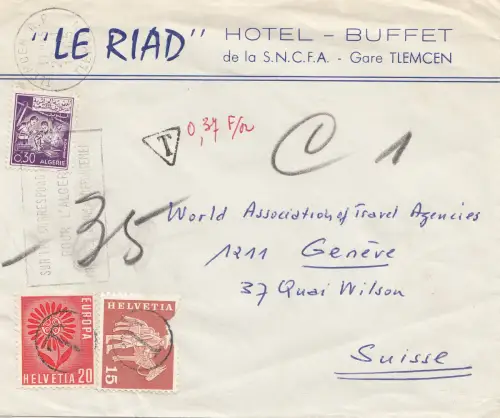 "LE RIAD" HOTEL - BUFFET
de la S.N.C.F.A. - Gare TLEMCEN
0,30
ALGERIE
T
0,37 F/or
C 1
SUR
POUR L'ALGER
-35
World Association of Travel Agencies
1211 Genève
37 Quai Wilson
Suisse
EUROPA
HELVETIA 20
HELVETIA
15